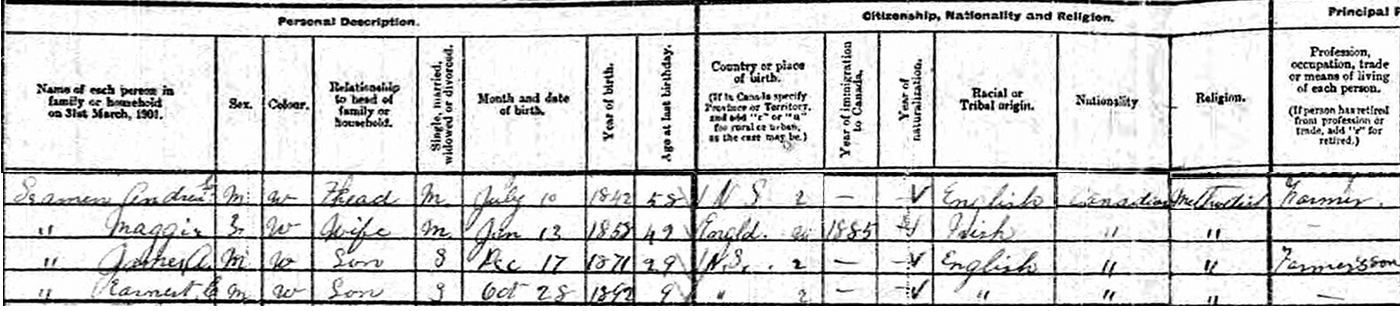 Personal Description. Citizenship, Nationality and Religion. Principal
Name of each person in family or household on 31st March, 1901.
Sex.
Colour.
Relationship to head of family or household.
Single, married, widowed or divorced.
Month and date of birth.
Year of birth.
Age at last birthday.
Country or place of birth. (If in Canada specify Province or Territory, and add "r" or "u" for rural or urban, as the case may be.)
Year of immigration to Canada.
Year of naturalization.
Racial or Tribal origin.
Nationality
Religion.
Profession, occupation, trade or means of living of each person. (If person has retired from profession or trade, add "r" for retired.)
Seamen M. W Head M. July 10 1842 58 N S 2 — English Canadian Methodist Farmer.
" Maggie W Wife M. Jan 13 1858 Engld. 1885 Irish " " —
" M W Son S Dec 17 1871 29 N.S. 2 — English " " Farmer's son
" Earnest M W Son S Oct 28 1892 9 " 2 — " " " —